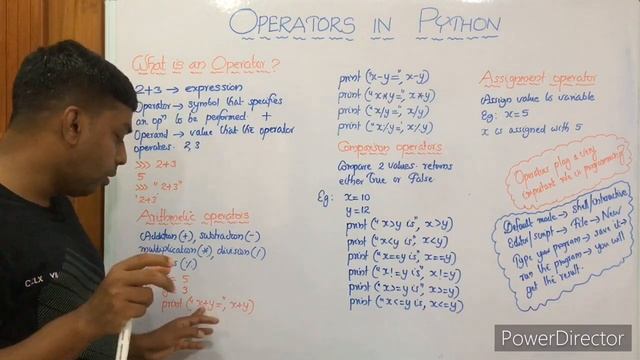 OPERATORS IN PYTHON
What is an Operator?
2+3 → expression
Operator → symbol that specifies
an op" to be performed +
Operand → value that the operator
operates. 2,3
>>> 2+3
5
>>> "2+3"
'2+3'
Arithmetic operators
(Addition (+), subtraction (-)
multiplication (*), division (/)
(%)
5
3
print ("x+y=", x+y)
print ("x-y=", x-y)
print ("x**y=", x**y)
print ("x/y=", x/y)
print ("x//y=", x//y)
Comparison operators
Compare 2 values. returns
either True or False
Eg: x=10
y=12
print ("x>y is", x>y)
print ("x<y is", x<y)
print ("x==y is", x==y)
print ("x!=y is", x!=y)
print ("x>=y is", x>=y)
print ("x<=y is, x<=y)
Assignment operator
Assign value to variable
Eg: x=5
x is assigned with 5
Operators play a very
important role in programming!
Default mode → Shell/Interactive
Editor/script → File → New →
Type your program → save it →
run the program → you will
get the result.
C:LX VI
PowerDirector